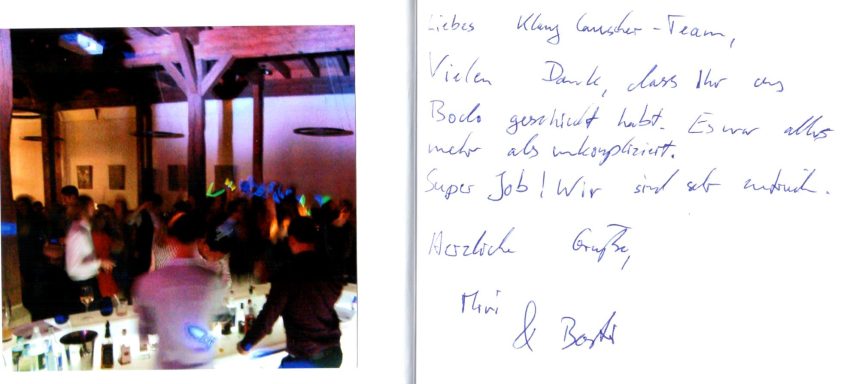 Liebes Klanglauscher-Team,
Vielen Dank, dass Ihr uns
Bodo geschickt habt. Es war alles
mehr als unkompliziert.
Super Job! Wir sind sehr
Herzliche Grüße,
Mivi
& Basti